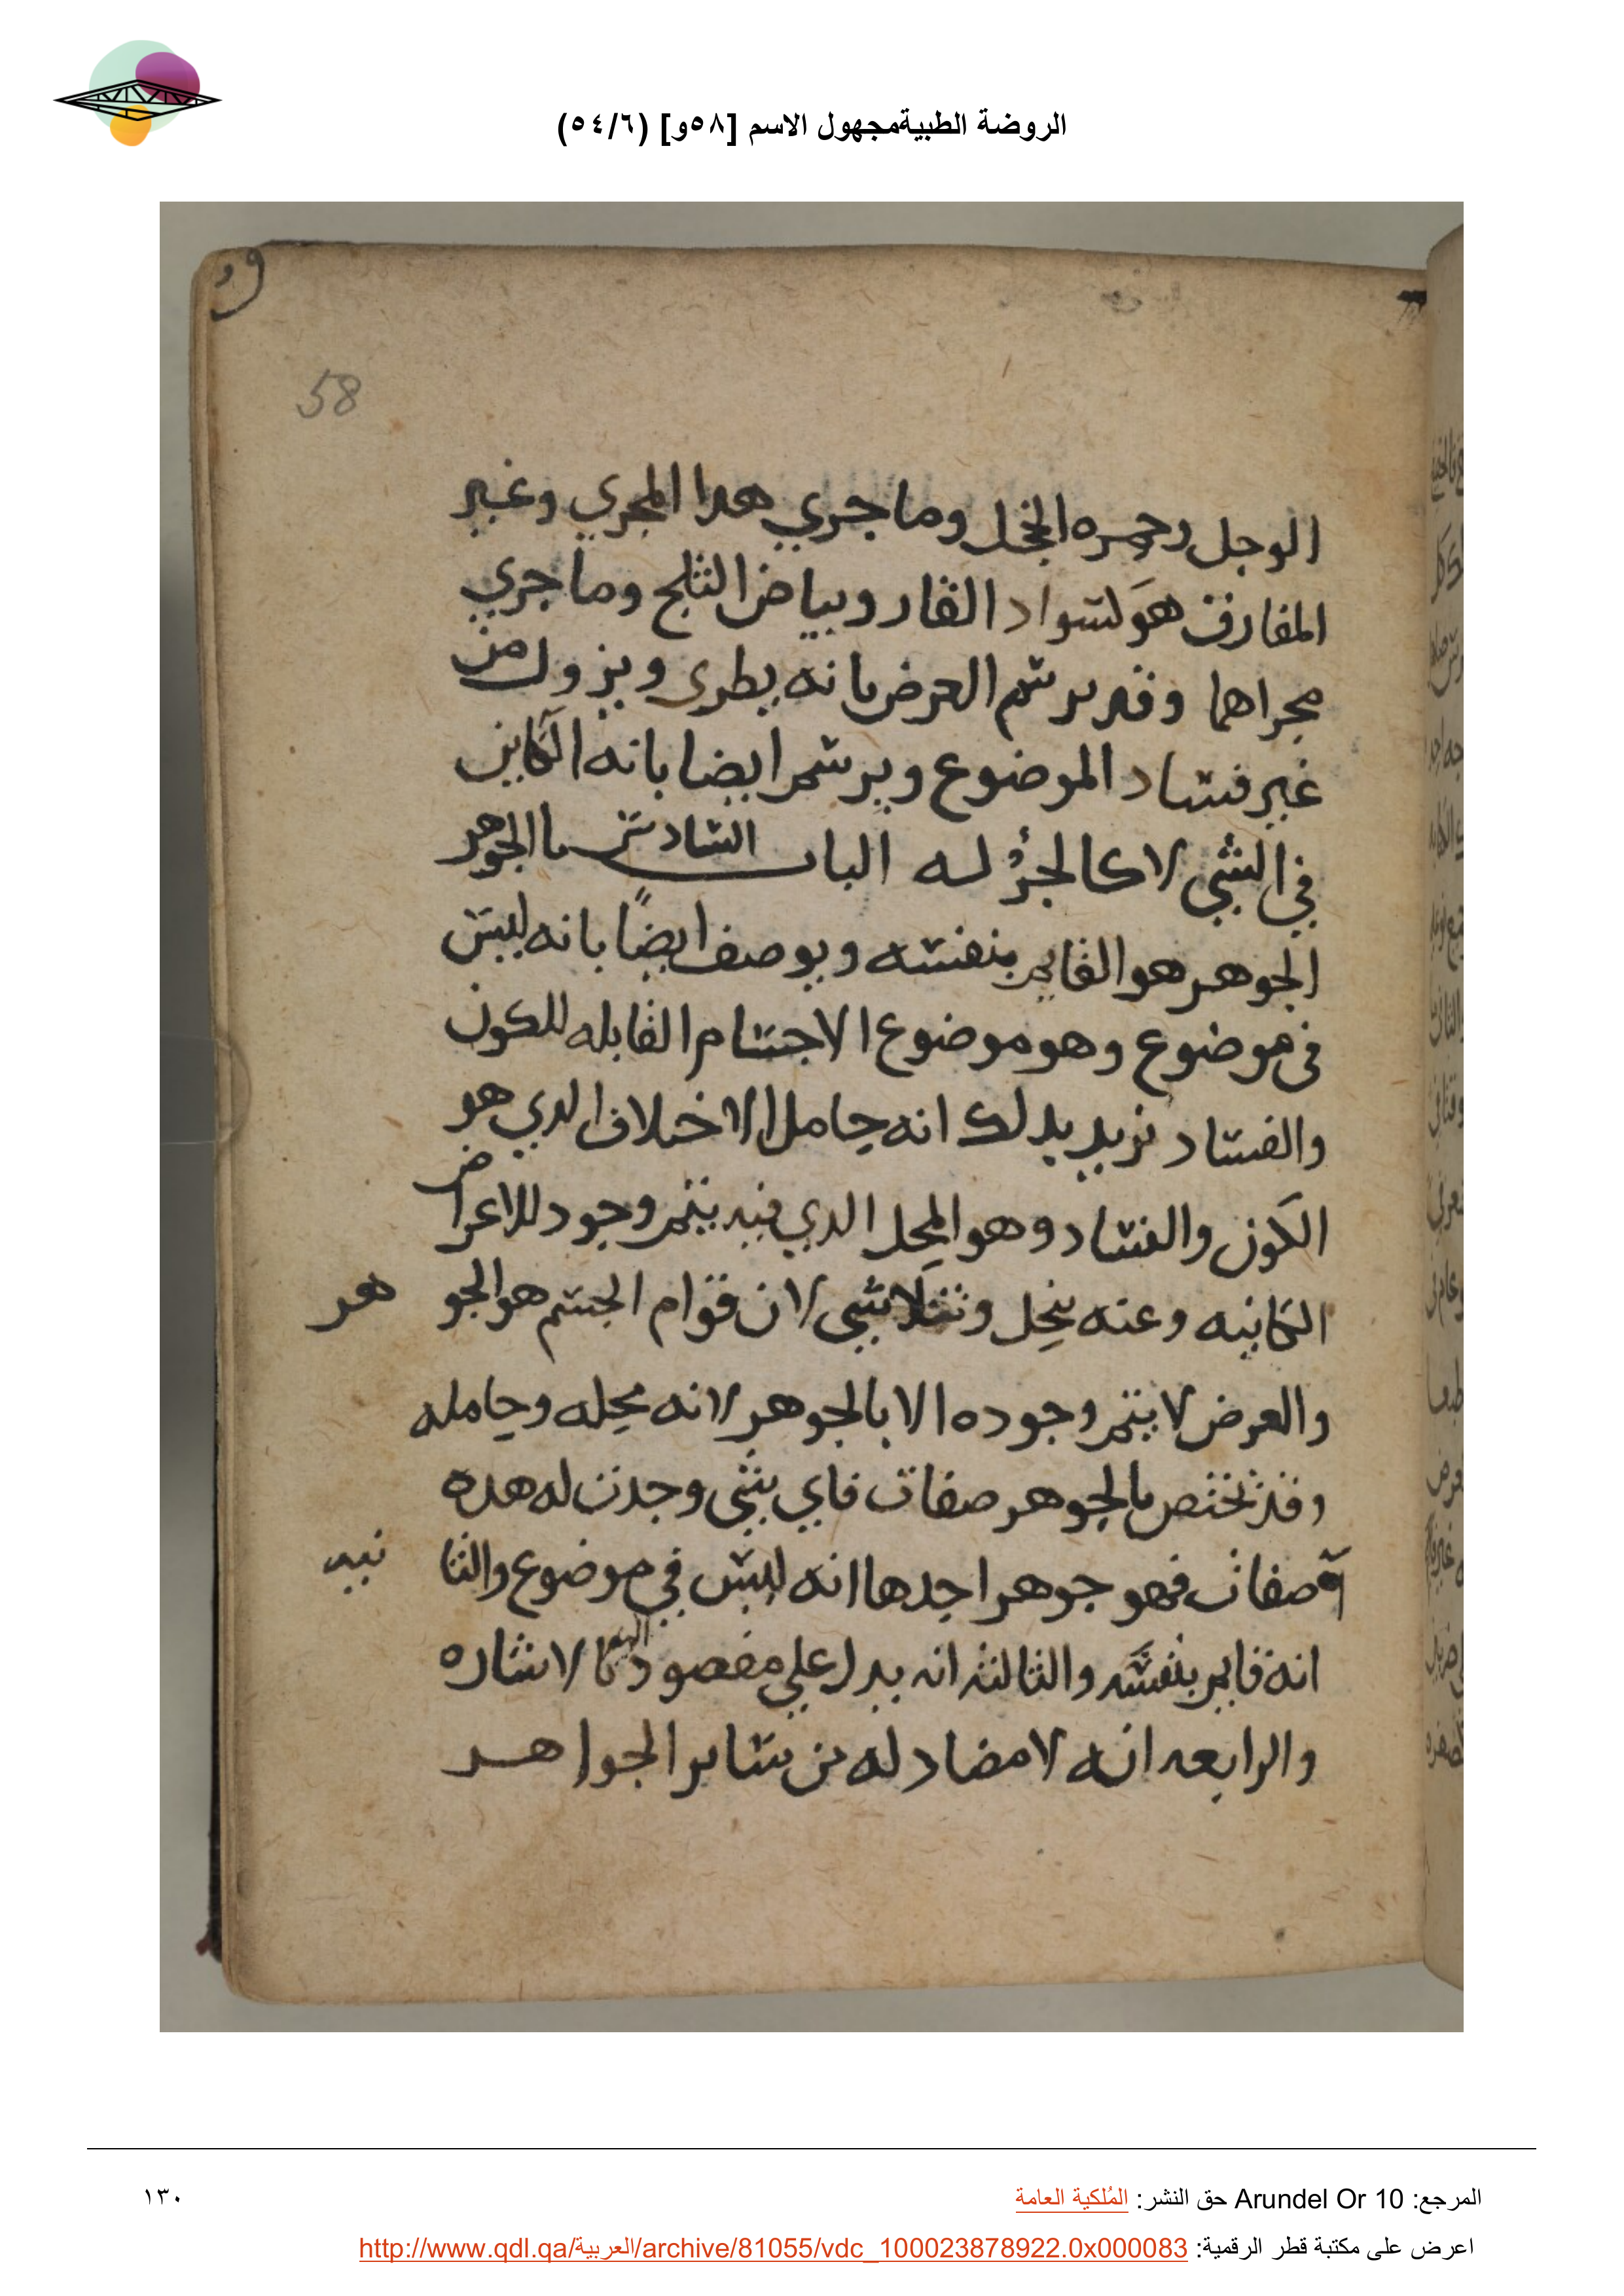 الروضة الطبيةمجهول الاسم [٥٨و] (٥٤/٦)
58
الوجل وحمره الخجل وما جري هدا المجري وغير
المفارق هو كسواد القار وبياض الثلج وما جري
مجراهما وقد يرسم العرض بانه يطرى ويزول من
غير فساد الموضوع ويرسم ايضا بانه الكاين
في الشي لا كالجزؤ له الباب السادس ما الجوهر
الجوهر هو القايم بنفسه ويوصف ايضًا بانه ليس
في موضوع وهو موضوع الاجسام القابله للكون
والفساد نريد بدلك انه حامل الاختلاف الدي هو
الكون والفساد وهو المحل الدي فيه يتم وجود للاعراض
الكاينه وعنه ينحل وتتلاشي لان قوام الجسم هو الجوهر
والعرض لا يتم وجوده الا بالجوهر لانه محله وحامله
وقد تختص بالجوهر صفات فاي شي وجدت له هده
صفات فهو جوهر احدها انه ليس في موضوع والثانيه
انه قايم بنفسه والثالثه انه يدل علي مقصود اليه بالاشاره
والرابعه انه لا مضاد له من ساير الجواهر
المرجع: Arundel Or 10 حق النشر: المُلكية العامة
١٣٠
اعرض على مكتبة قطر الرقمية: http://www.qdl.qa/العربية/archive/81055/vdc_100023878922.0x000083